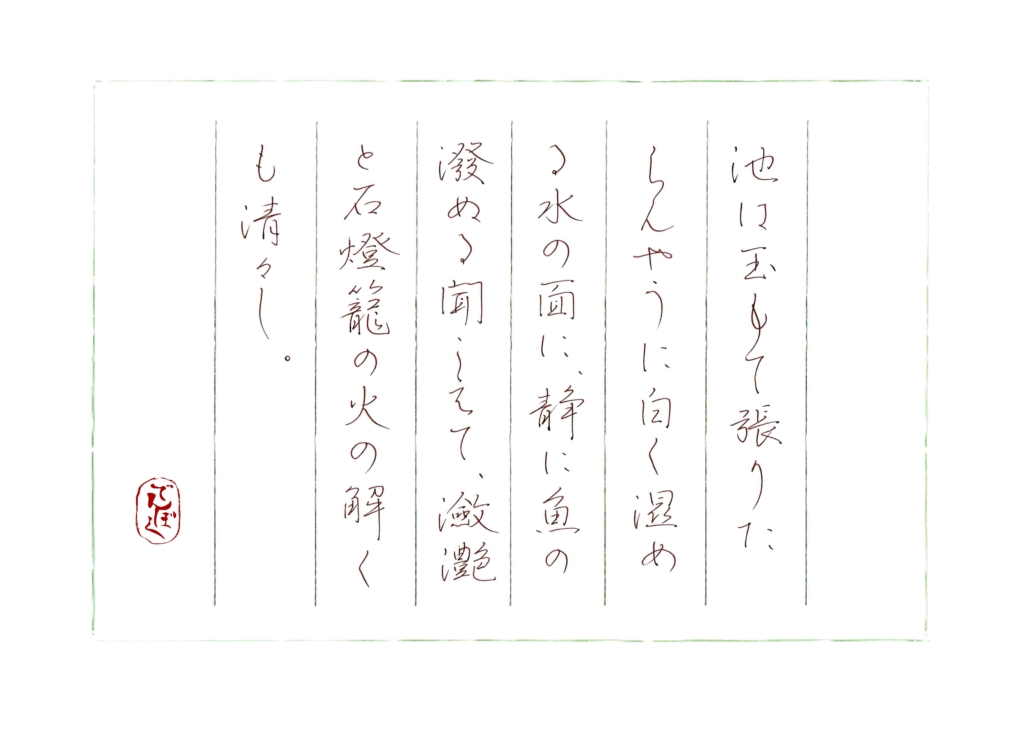 池は玉もて張りた
らんやうに白く湿め
る水の面に、静に魚の
潑ぬる聞こえて、瀲灔
と石燈籠の火の解く
も清々し。